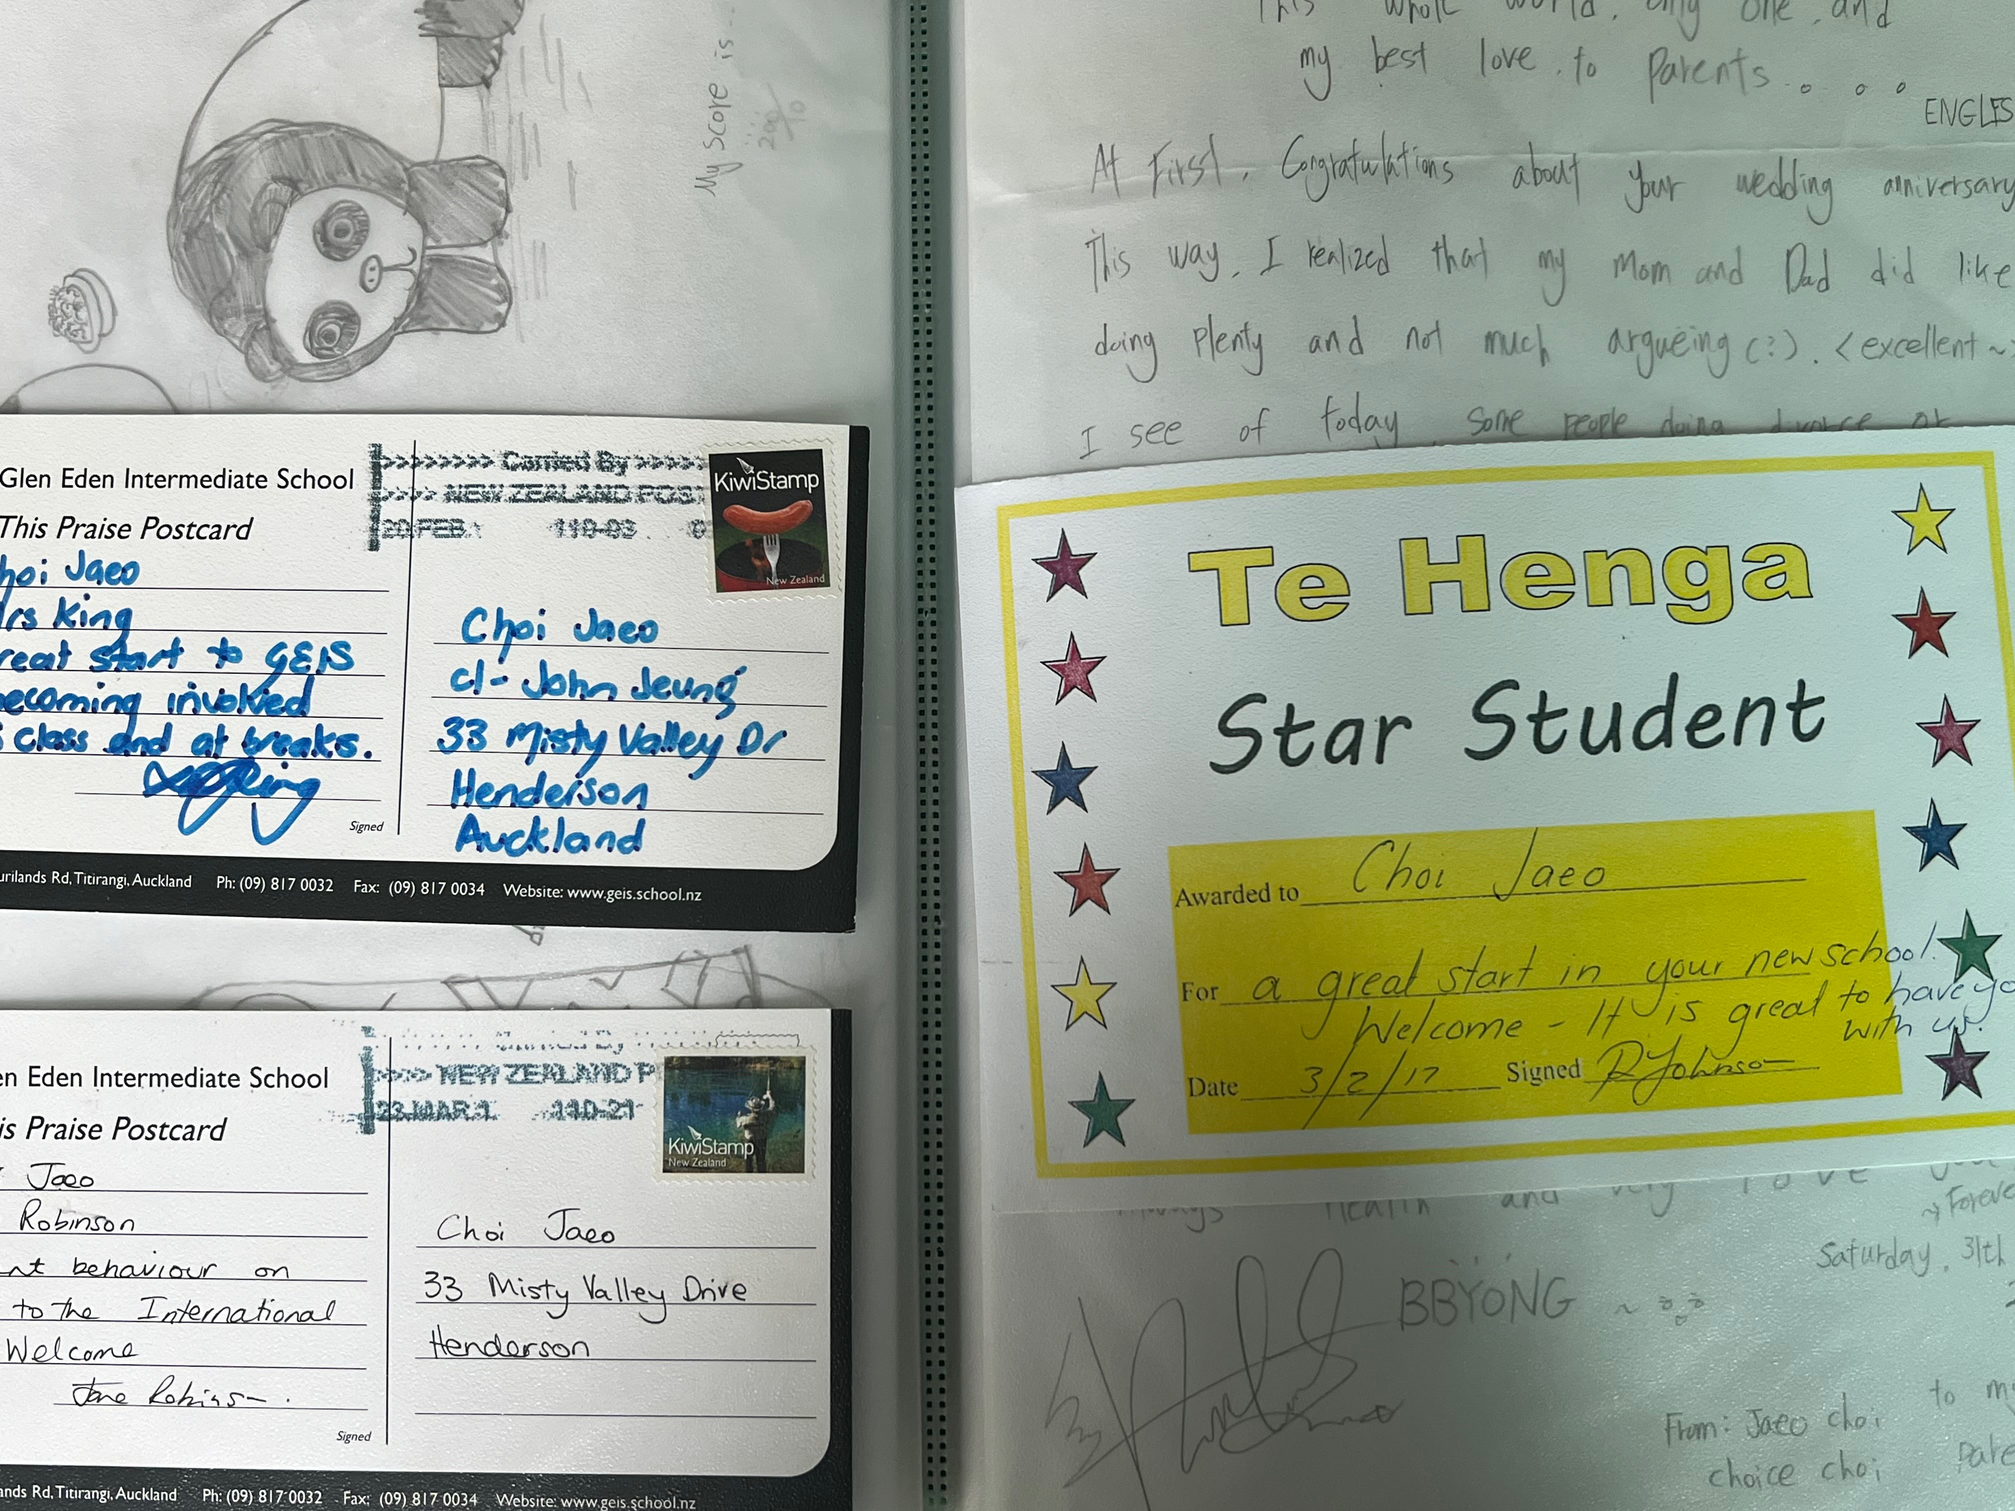 My score is..
Glen Eden Intermediate School
This Praise Postcard
hoi Jaeo
rs King
reat start to GEIS
ecoming involved
s class and at breaks.
Signed
>>>>>>>> Carried By >>>>>
>>>> NEW ZEALAND POST
20 FEB 1 110-03
KiwiStamp
New Zealand
Choi Jaeo
c/- John Jeung
33 Misty Valley Dr
Henderson
Auckland
urilands Rd, Titirangi, Auckland Ph: (09) 817 0032 Fax: (09) 817 0034 Website: www.geis.school.nz
en Eden Intermediate School
is Praise Postcard
Jaeo
Robinson
nt behaviour on
to the International
Welcome
Jane Robins
Signed
>>>> NEW ZEALAND P
23 MAR 1 110-21
KiwiStamp
New Zealand
Choi Jaeo
33 Misty Valley Drive
Henderson
ands Rd, Titirangi, Auckland Ph: (09) 817 0032 Fax: (09) 817 0034 Website: www.geis.school.nz
This whole world, only one, and
my best love. to parents . . . .
ENGLIS
At First, Congratulations about your wedding anniversary
This way, I realized that my Mom and Dad did like
doing plenty and not much argueing (?). <excellent~
I see of today, some people doing divorce or
Te Henga
Star Student
Awarded to Choi Jaeo
For a great start in your new school.
Welcome - It is great to have yo
with us.
Date 3/2/17 Signed R Johnson
Always Health and very love
~Foreve
Saturday, 31th
BBYONG ~
From: Jaeo choi to m
choice choi pare